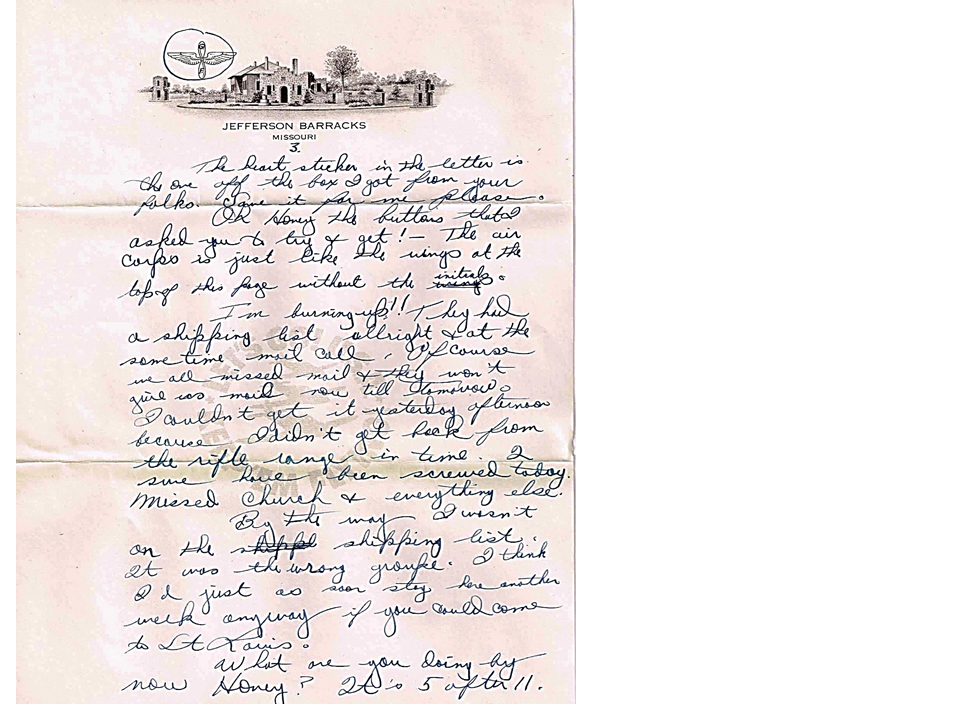 JEFFERSON BARRACKS
MISSOURI
3.
The heart sticker in the letter is
the one off the box I got from your
folks. Save it for me please.
Oh Honey the buttons that I
asked you to try & get! — The air
corps is just like the wings at the
top of this page without the initials.
I'm burning up!! They had
a shipping list allright & at the
same time mail call. Of course
we all missed mail & they won't
give us mail now till tomorrow.
I couldn't get it yesterday afternoon
because I didn't get back from
the rifle range in time. I
sure have been screwed today.
Missed Church & everything else.
By the way I wasn't
on the shipping list.
It was the wrong groupe. I think
I'd just as soon stay here another
week anyway if you could come
to St Louis.
What are you doing by
now Honey? It's 5 after 11.